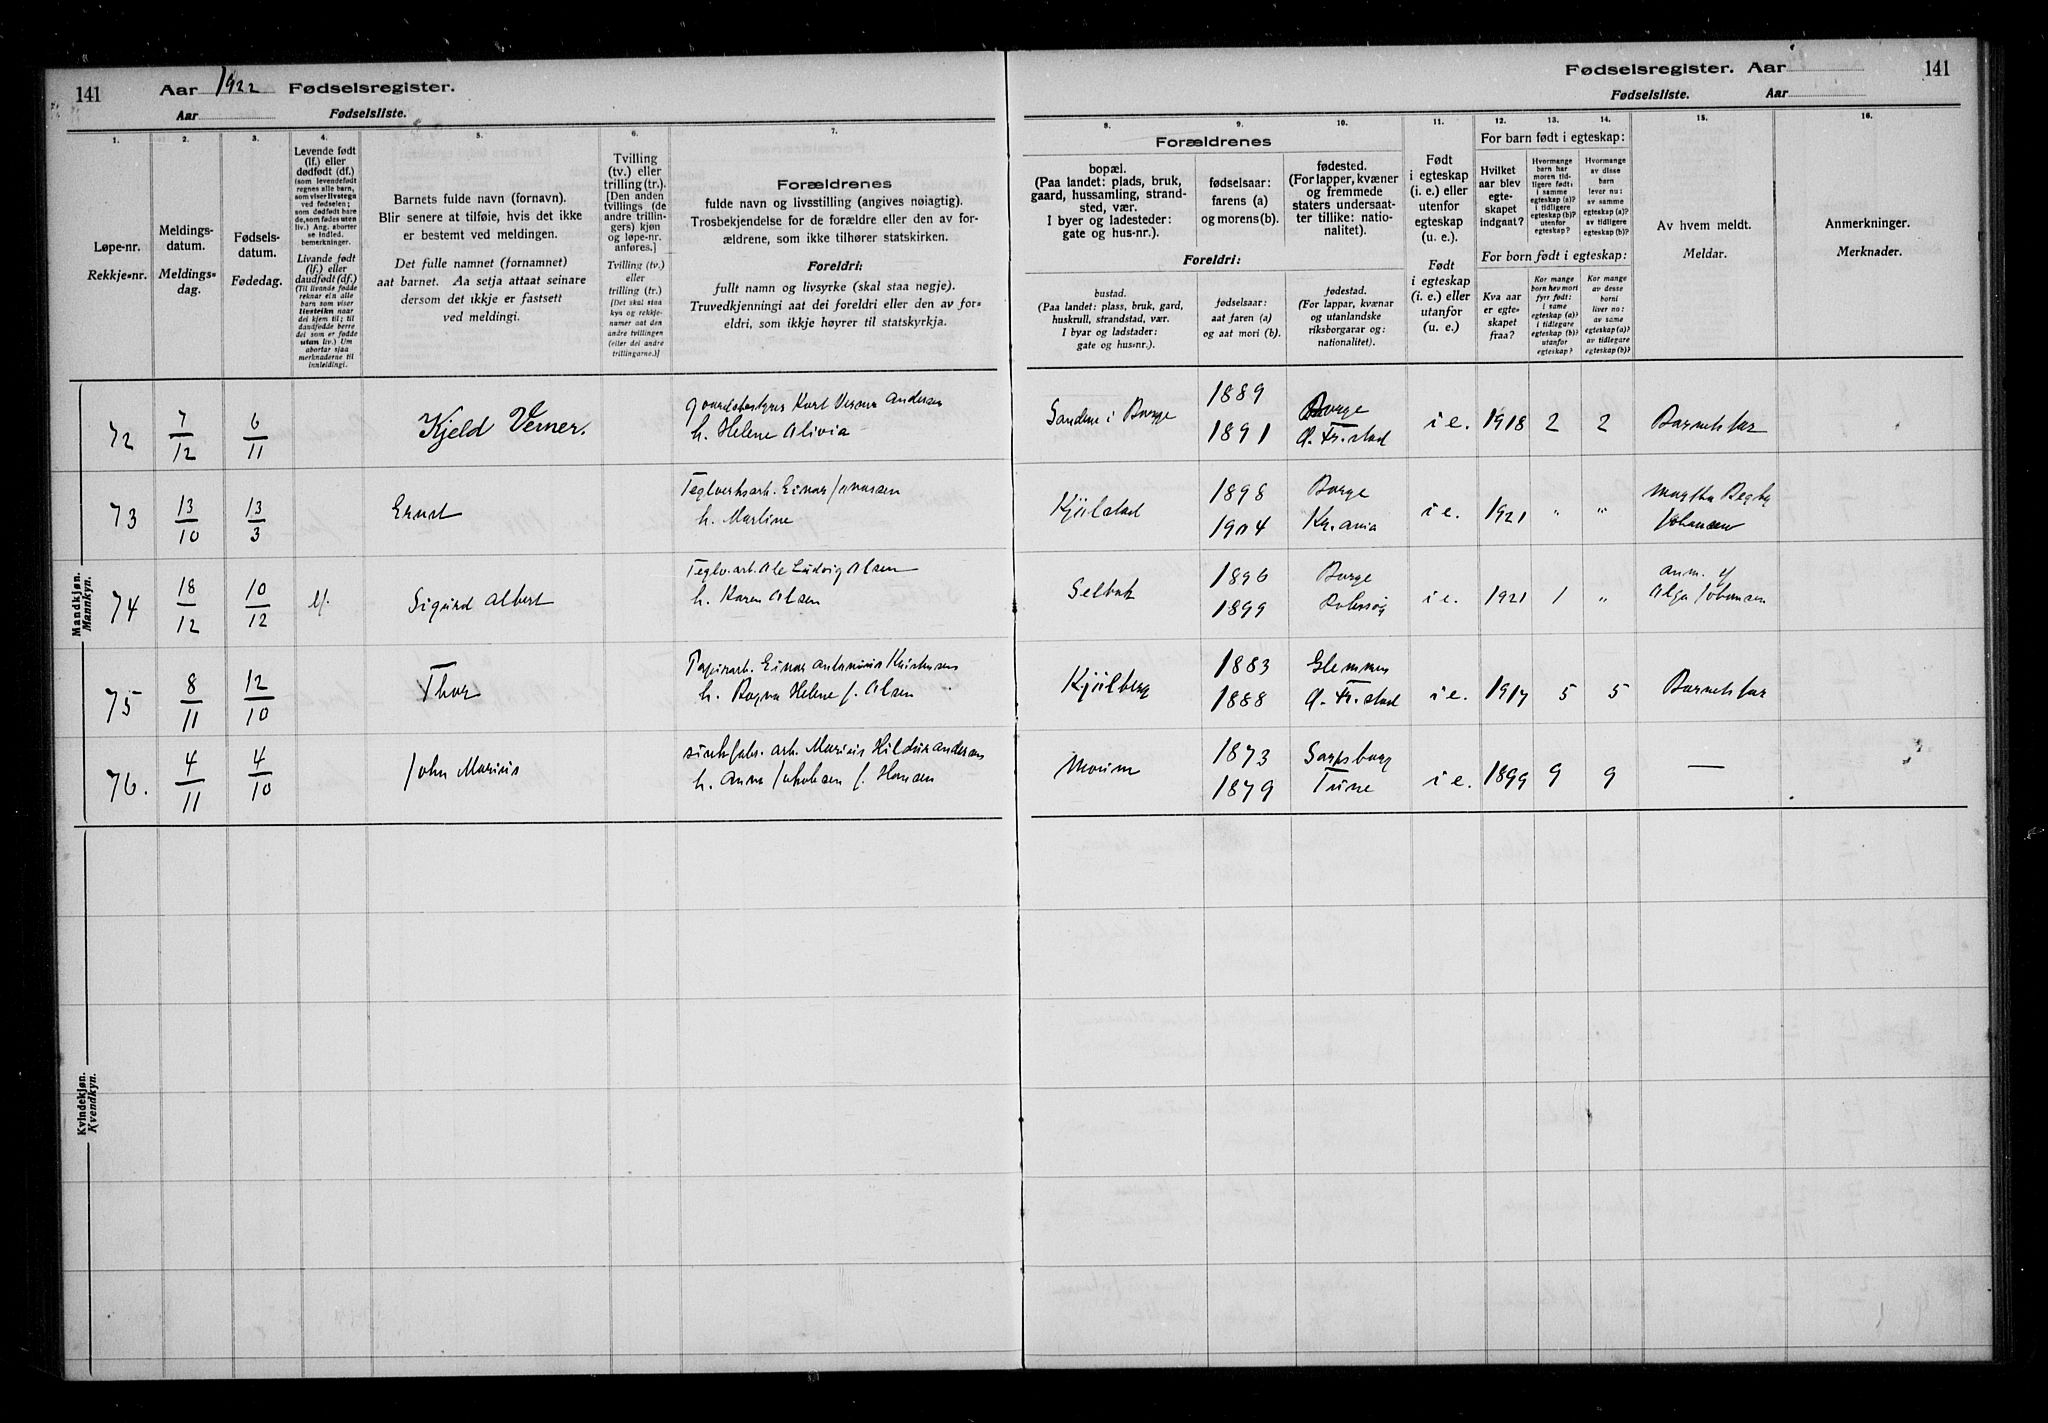 141
Aar 1922 Fødselsregister.
Aar Fødselsliste.
Fødselsregister. Aar
Fødselsliste. Aar
141
1. 2. 3. 4. 5. 6. 7. 8. 9. 10. 11. 12. 13. 14. 15. 16.
Løpe-nr.
Rekkje-nr.
Meldings-
datum.
Meldings-
dag.
Fødsels-
datum.
Fødedag.
Levende født
(lf.) eller
dødfødt (df.)
(som levendefødt
regnes alle barn,
som viser livstegn
ved fødselen;
som dødfødt bare
de, som fødes uten
liv.) Ang. aborter
se indled.
bemerkninger.
Livande født
(lf.) eller
daudfødt (df.)
(Til livande fødde
reknar ein alle
barn som viser
livsteikn naar
dei kjem til; til
daudfødde berre
dei som er fødde
utan liv.) Um
abortar sjaa
merknaderne til
innleidingi.
Barnets fulde navn (fornavn).
Blir senere at tilføie, hvis det ikke
er bestemt ved meldingen.
Det fulle namnet (fornamnet)
aat barnet. Aa setja attaat seinare
dersom det ikkje er fastsett
ved meldingi.
Tvilling
(tv.) eller
trilling (tr.).
[Den anden
tvillings (de
andre trillin-
gers) kjøn
og løpe-nr.
anføres.]
Tvilling (tv.)
eller
trilling (tr.)
[Det skal staa
kyn og rekkje-
numer aat den
andre tvillingen
(eller dei andre
trillingarne.)]
Forældrenes
fulde navn og livsstilling (angives nøiagtig).
Trosbekjendelse for de forældre eller den av for-
ældrene, som ikke tilhører statskirken.
Foreldri:
fullt namn og livsyrke (skal staa nøgje).
Truvedkjenningi aat dei foreldri eller den av for-
eldri, som ikkje høyrer til statskyrkja.
Forældrenes
bopæl.
(Paa landet: plads, bruk,
gaard, hussamling, strand-
sted, vær.
I byer og ladesteder:
gate og hus-nr.).
fødselsaar:
farens (a)
og morens (b).
fødested.
(For lapper, kvæner
og fremmede
staters undersaat-
ter tillike: natio-
nalitet).
Foreldri:
bustad.
(Paa landet: plass, bruk, gard,
huskrull, strandstad, vær.
I byar og ladstader:
gate og hus-nr.).
fødselsaar:
aat faren (a)
og aat mori (b).
fødestad.
(For lappar, kvænar
og utanlandske
riksborgarar og:
nationalitet).
Født
i egteskap
(i. e.) eller
utenfor
egteskap
(u. e.).
Født
i egteskap
(i. e.) eller
utanfor
(u. e.)
For barn født i egteskap:
Hvilket
aar blev
egte-
skapet
indgaat?
Hvormange
barn har
moren tid-
ligere født:
i samme
egteskap (a)?
i tidligere
egteskap (b)?
utenfor
egteskap?
Hvormange
av disse
barn
lever nu:
av samme
egteskap (a)?
av tidligere
egteskap (b)?
For born født i egteskap:
Kva aar
er egte-
skapet
fraa?
Kor mange
born hev mori
fyrr født:
i same
egteskap (a)?
i tidlegare
egteskap (b)?
utanfor
egteskap?
Kor mange
av desse
borni
liver no:
av same
egteskap (a)?
av tidlegare
egteskap (b)?
Av hvem meldt.
Meldar.
Anmerkninger.
Merknader.
Mandkjøn.
Mannkyn.
72 7/12 6/11 Kjeld Verner. Karl Verner Andersen
h. Helene Alivia
Sandem i Borge 1889 Borge i e. 1918 2 2 Barnets far
1891 Fr.stad
73 13/10 13/3 Ernst Teglverksarb. Einar
h. Martine
Kjölstad 1898 Borge i e. 1921 " " Martha Begby
1904 Kr.ania Johansen
74 18/12 10/12 lf. Sigurd Albert Teglv.arb. Ole Ludvig Olsen
h. Karen Olsen
Selbak 1896 Borge i e. 1921 1 " anm. y
1899 Rolvsöy Olga Johansen
75 8/11 12/10 Thor Papirarb. Einar Antonius Kristensen
h. Ragna Helene f. Olsen
Kjölberg 1883 Glemmen i e. 1917 5 5 Barnets far
1888 Fr.stad
76. 4/11 4/10 John Marius arb. Marius Hildur Andersen
h. Anna Jakobsen f. Hansen
Moum 1873 Sarpsborg i e. 1899 9 9 —
1879 Tune
Kvindekjøn.
Kvendkyn.